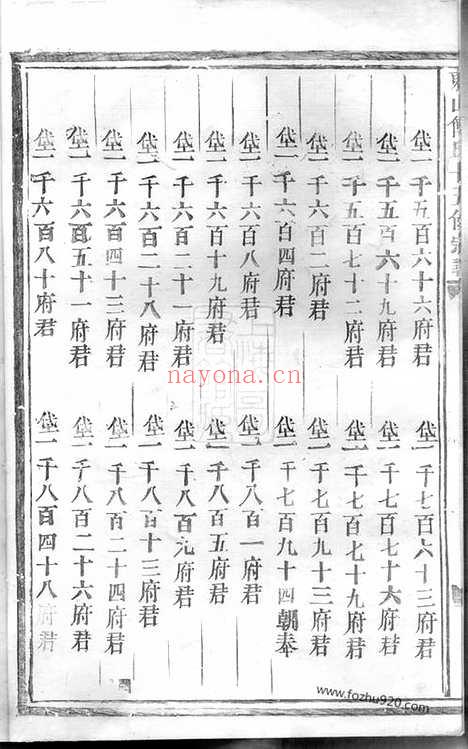 山傅氏十五修宗譜
垡一千五百六十六府君
垡一千七百六十三府君
垡一千五百六十九府君
垡一千七百七十六府君
垡一千五百七十二府君
垡一千七百七十九府君
垡一千六百二府君
垡一千七百九十三府君
垡一千六百四府君
垡一千七百九十四朝奉
垡一千六百八府君
垡一千八百一府君
垡一千六百十九府君
垡一千八百五府君
垡一千六百二十一府君
垡一千八百九府君
垡一千六百二十八府君
垡一千八百十三府君
垡一千六百四十三府君
垡一千八百二十四府君
垡一千六百五十一府君
垡一千八百二十六府君
垡一千六百八十府君
垡一千八百四十八府君
nayona.cn
www.fozhu920.com